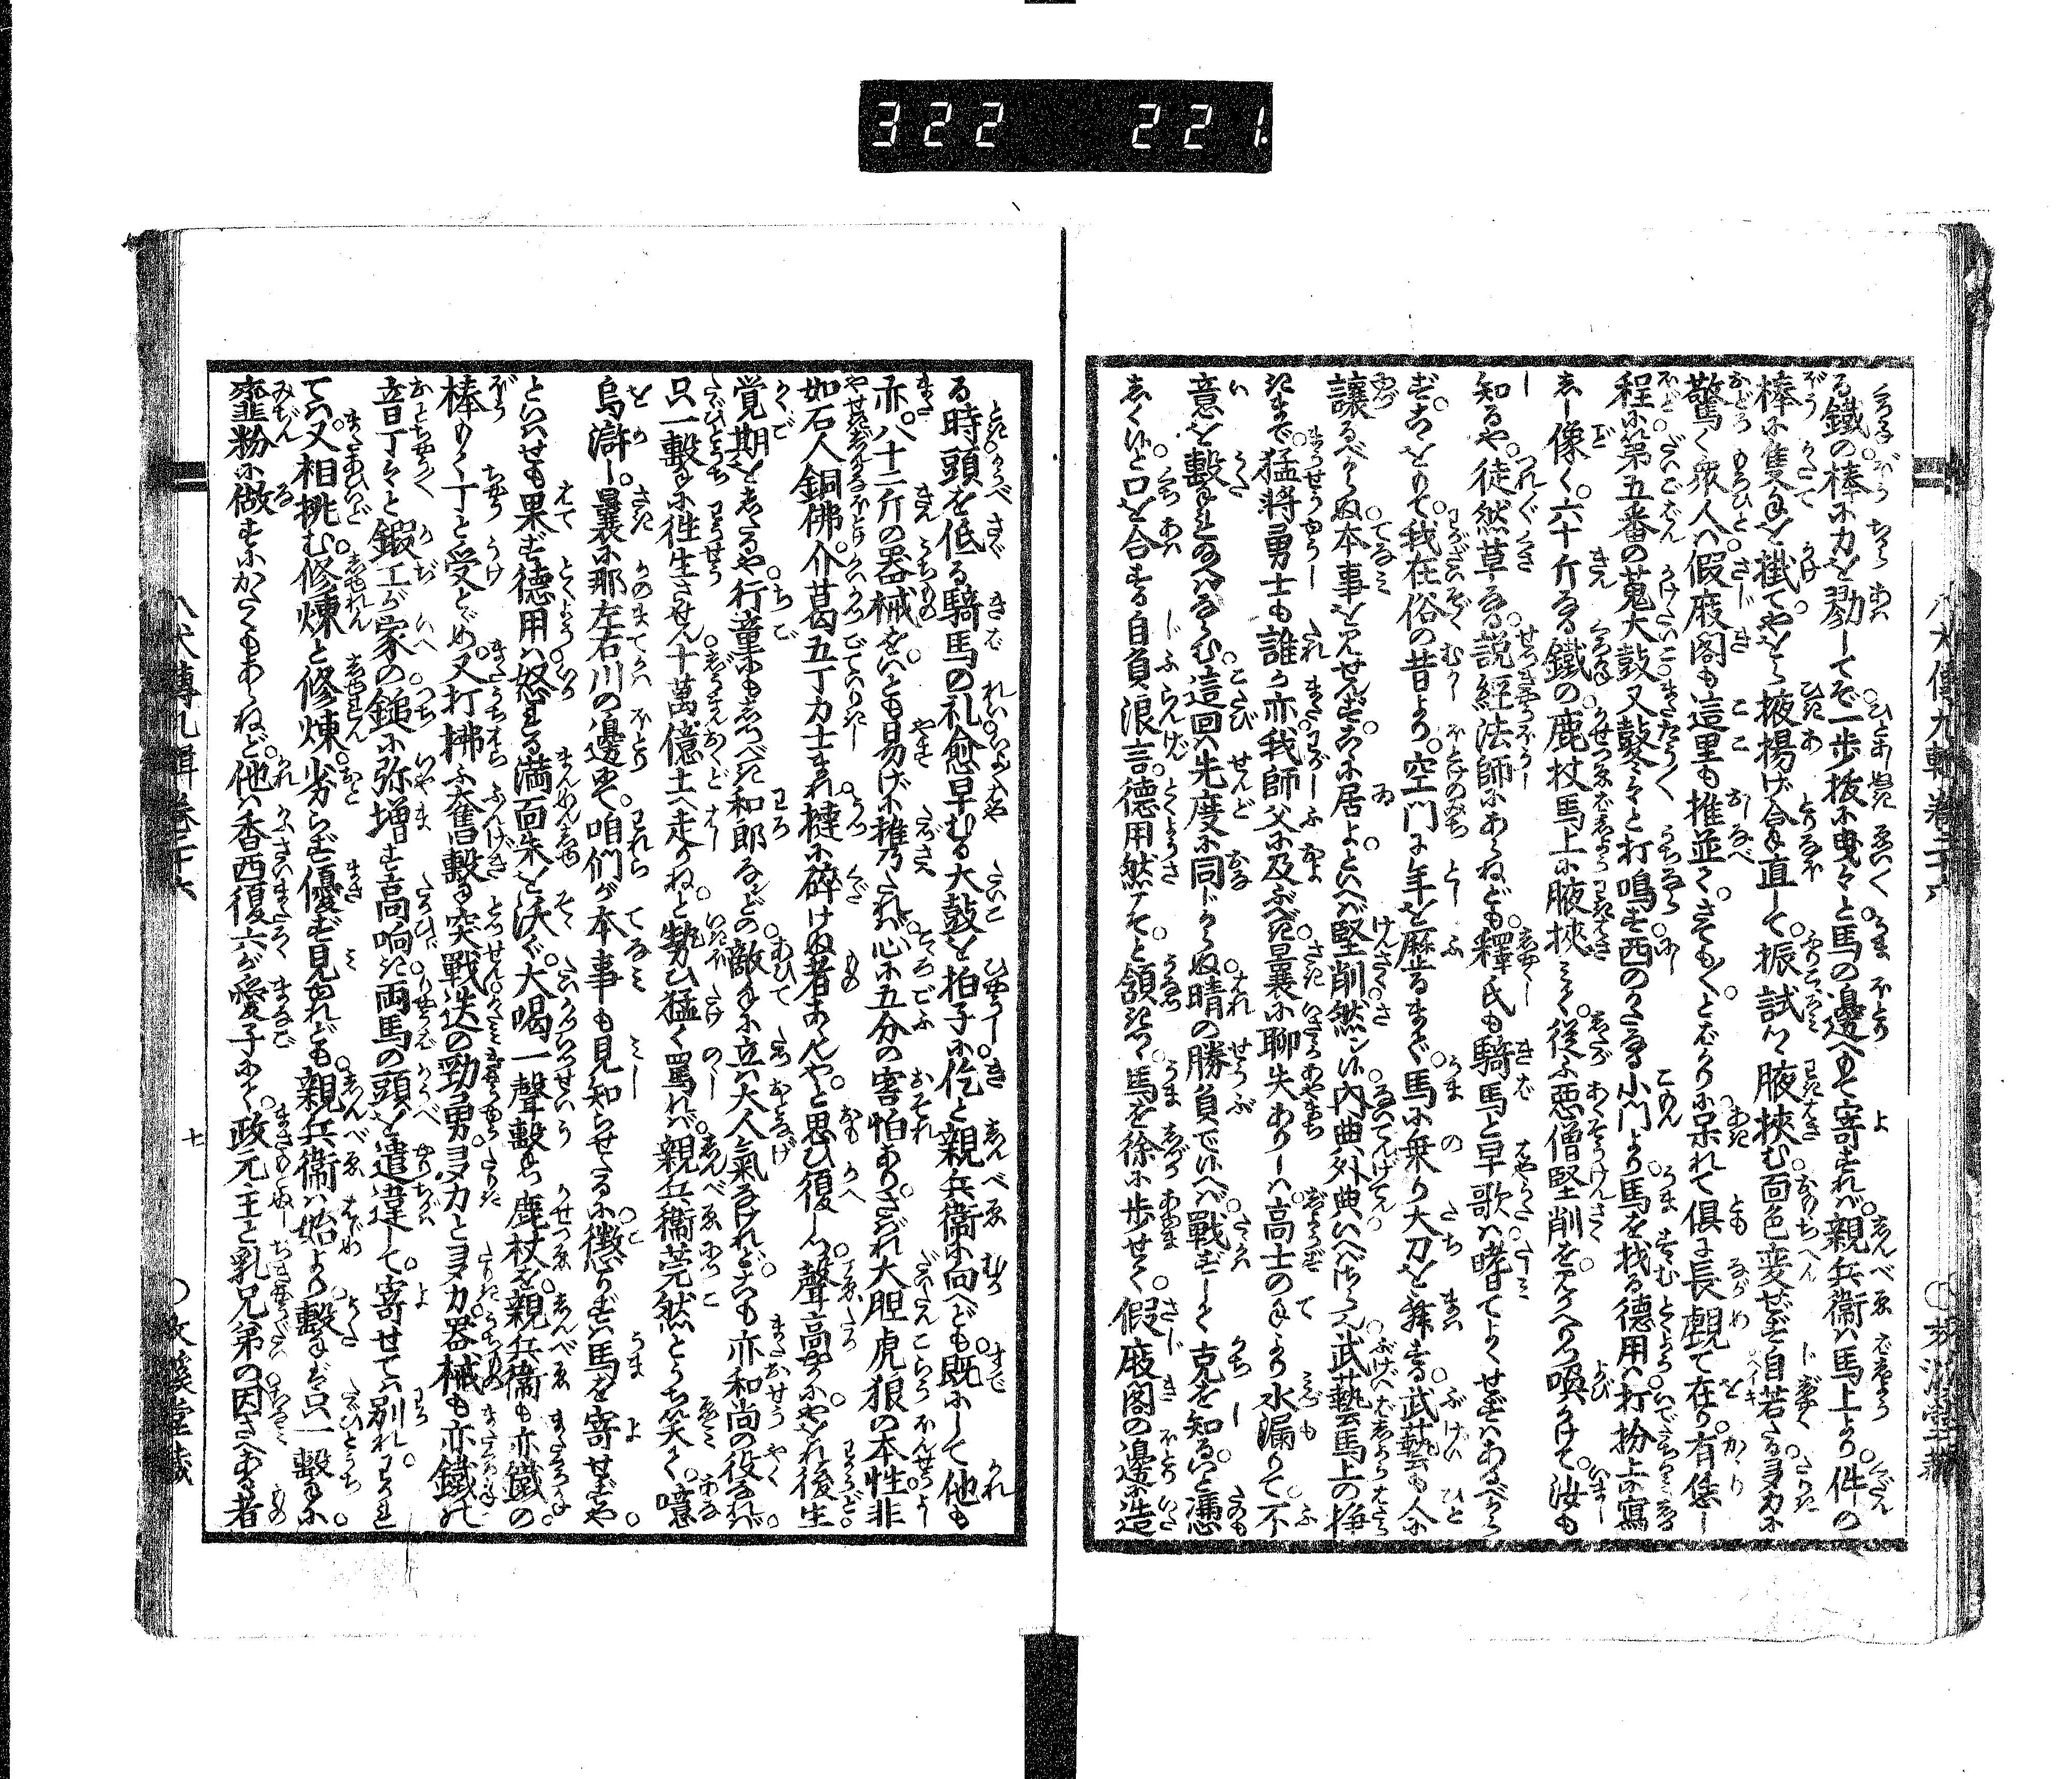 322 221
る鐵の棒に力を勠してぞ一歩拔に曳々と馬の邊へもて寄すれば親兵衞は馬上より件の
棒に隻手を掛てやをら掖揚げ合手直して振試つ腋挾む面色変ぜず自若たる多力に
驚く衆人は假廠閣も這里も推並てさても〳〵とばかりに呆れて倶に長觀て在り有恁し
程に第五番の蒐大鼓又鼕々と打鳴す西のかたなる小門より馬を找る徳用は打扮上に寫
し像く六十斤なる鐵の鹿杖馬上に腋挾みて從ふ悪僧堅削を見かへりつ喚かけて汝も
知るや徒然草なる説經法師にあらねども釋氏も騎馬と早歌は嗜てよくせずはあるべから
ずこをもて我在俗の昔より空門に年を歴るまで馬に乗り大刀を舞する武藝も人に
讓るべからぬ本事を見せんずこゝに居よといへば堅削然ン候内典外典はいへばさら也武藝馬上の挣
きまで猛將勇士も誰か亦我師父に及ぶべき曩に聊失ありしは高士の手より水漏りて不
意を擊れしなるべからむ這回は先度に同じからぬ晴の勝負で候へば戰ずして克を知るいと憑
しく候と口を合する自負浪言徳用然ぞと頷きつ馬を徐に歩せて假廠閣の邊に造
る時頭を低る騎馬の礼愈早むる大鼓を拍子に佶と親兵衞に向へども既にして他も
亦八十二斤の器械をいとも易げに推乃れば心に五分の害怕ありされ大胆虎狼の本性非
如石人銅佛个葛五丁力士まれ撻に碎けぬ者あらんやと思ひ復しつ聲高やかにやをれ後生
覚期をしたるや行童にもしつべき和郎などの敵手に立は大人氣なけれどこも亦和尚の役なれば
只一擊に往生させん十萬億土へ走りねと勢ひ猛く罵れば親兵衞莞然とうち笑て噫
烏滸し曩に那左右川の邊まで咱們が本事も見知らせたるに懲りずは馬を寄せずや
といはせも果ず徳用は怒れる満面朱を沃ぐ大喝一聲擊つ鹿杖を親兵衞も亦鐵の
棒もて丁と受とめ又打拂ふ奮擊突戰迭の勁勇多力と多力器械も亦鐵れ
音丁々と鍜工が家の鎚に弥増す高响き両馬の頭を遣違して寄せては別れわかれ
ては又相挑む修煉と修煉劣らず優ず見かれども親兵衞は始より擊ば只一擊に
韲粉に做すにかたくもあらねど他は香西復六が愛子にて政元主と乳兄弟の因さへある者
八犬傳九輯卷二十六
七
文溪堂藏